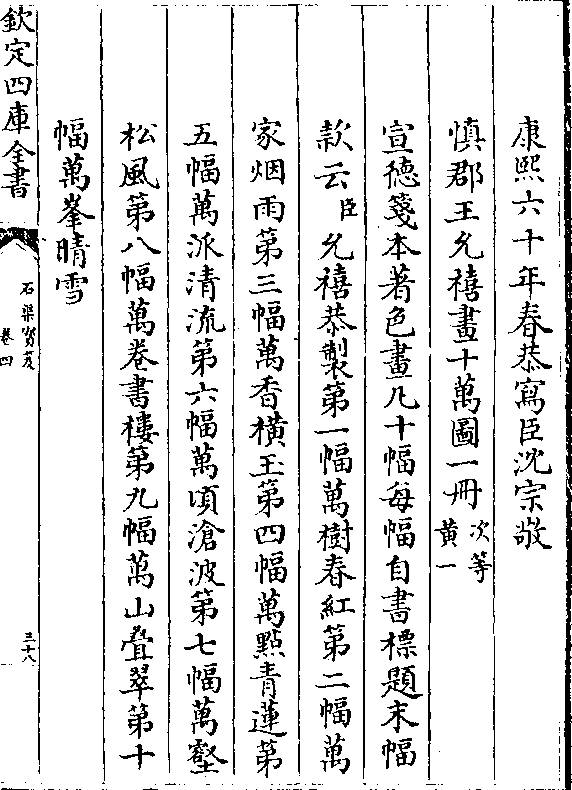 康熙六十年春恭寫臣沈宗敬
慎郡王允禧畫十萬圖一冊次等
黄一
宣德箋本著色畫凡十幅每幅自書標題末幅
款云臣允禧恭製第一幅萬樹春紅第二幅萬
家烟雨第三幅萬香橫玉第四幅萬點青蓮第
五幅萬派清流第六幅萬頃滄波第七幅萬壑
松風第八幅萬卷書樓第九幅萬山叠翠第十
幅萬峯晴雪
欽定四庫全書
石渠寳笈
卷四
三十八